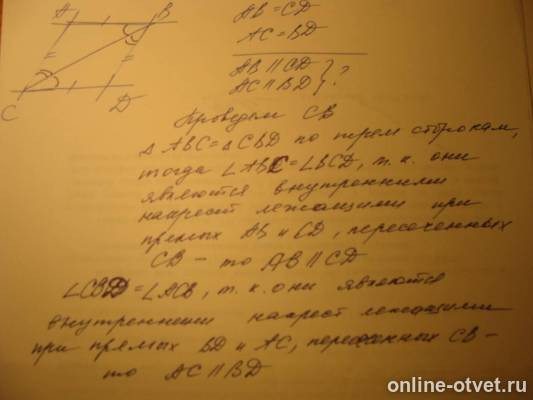 A B
C D
AB = CD
AC = BD
AB || CD } ?
AC || BD
Проведем CB
△ ABC = △ CBD по трем сторонам,
тогда ∠ABC = ∠BCD, т.к. они
являются внутренними
накрест лежащими при
прямых AB и CD, пересеченных
CB – то AB || CD
∠CBD = ∠ACB, т.к. они являются
внутренними накрест лежащими
при прямых BD и AC, пересеченных CB –
то AC || BD
online-otvet.ru